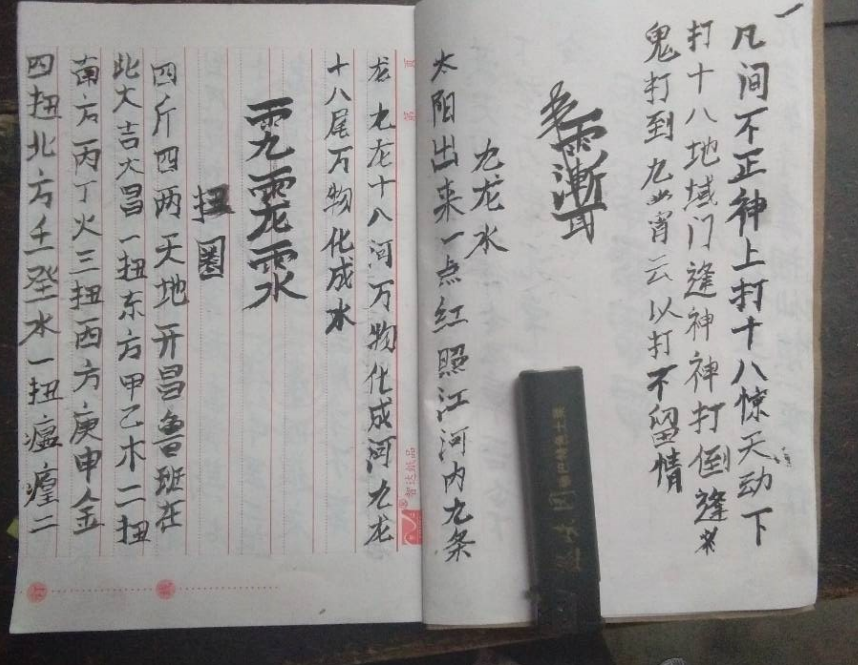 凡间不正神上打十八惊天动下
打十八地域门逢神神打倒逢
鬼打到九 霄云以打不留情
九龙水
太阳出来一点红照江河内九条
龙九龙十八河万物化成河九龙
十八尾万物化成水
扭圈
四斤四两天地开昌鲁班在
北大吉大昌一扭东方甲乙木二扭
南方一丙丁火三扭西方庚申金
四扭北方壬癸水一扭瘟 二
智达纸品